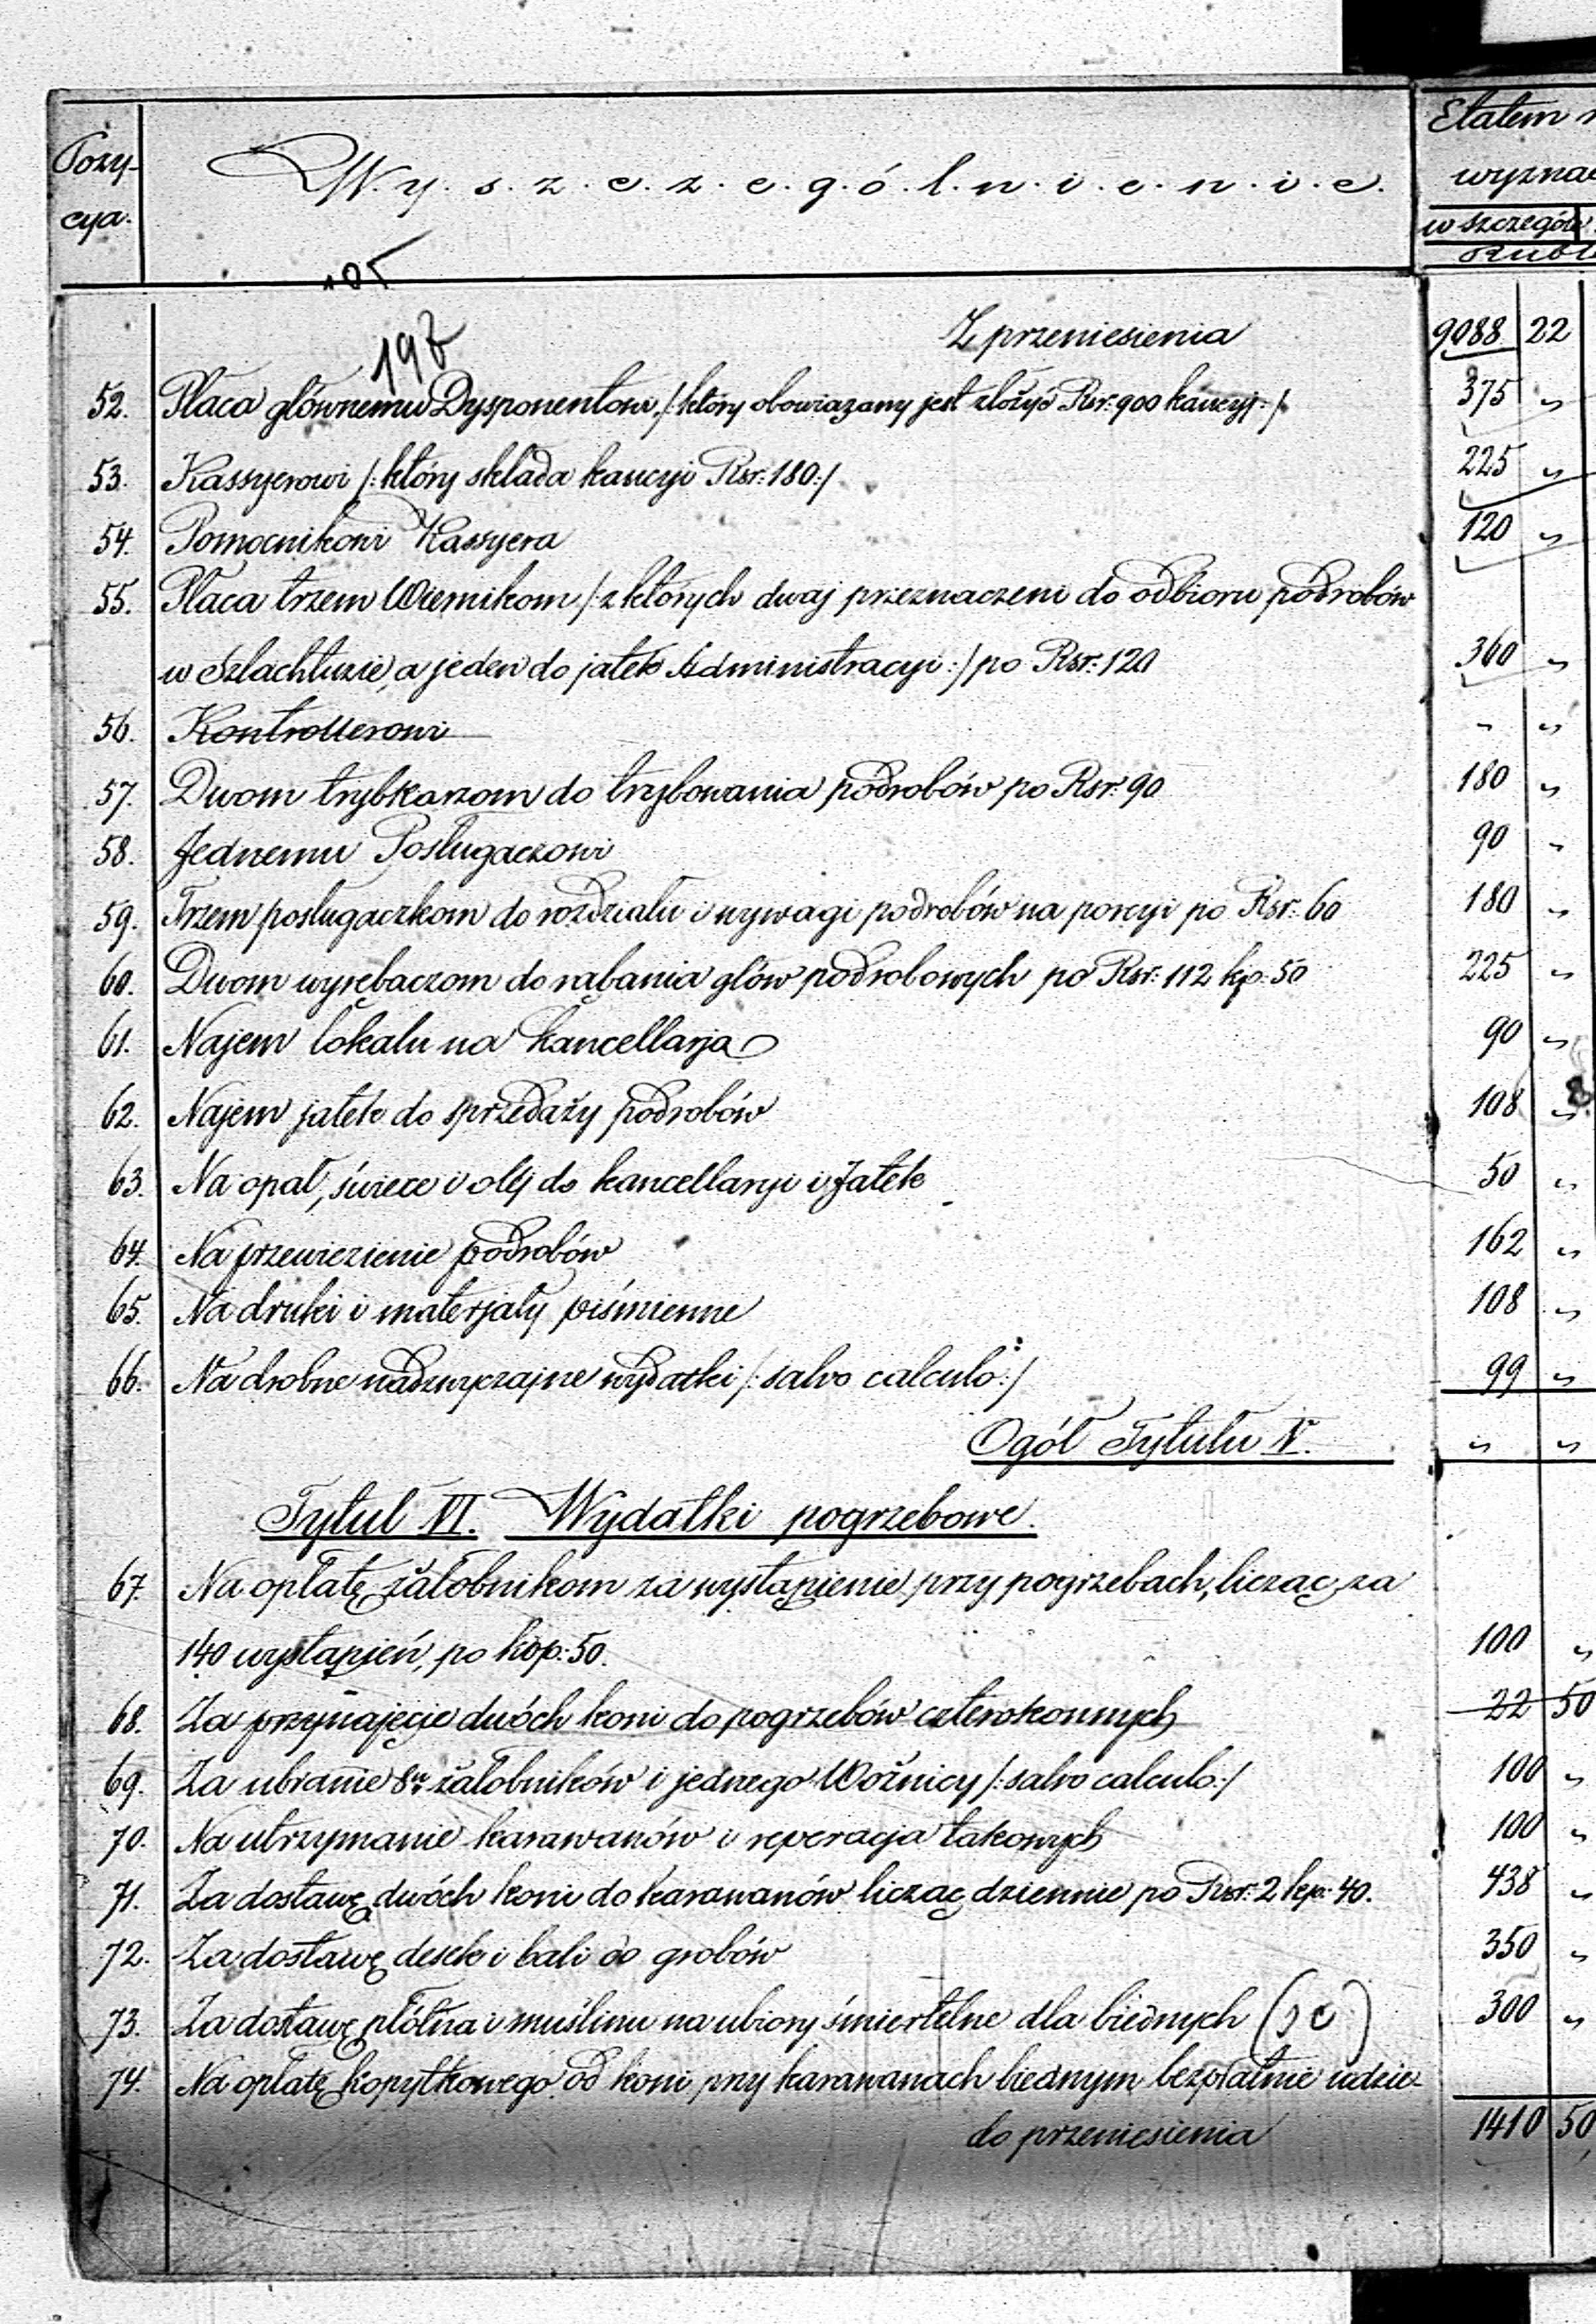 Pozy- Wyszczególnienie. Etatem
cya. wyzna
w szczególe
Rubl
197
Z przeniesienia 9088 22
52. Płaca głównemu Dysponentowi /: który obowiązany jest złożyć Rsr: 900 kaucyi :/ 375 "
53. Kassyerowi /: który składa kaucyi Rsr: 180 :/ 225 "
54. Pomocnikowi Kassyera 120 "
55. Płaca trzem Wiernikom /: z których dwaj przeznaczeni do odbioru podrobów
w Szlachtuzie, a jeden do jatek Administracyi :/ po Rsr: 120 360 "
56. Kontrollerowi - "
57. Dwom trybkarzom do trybowania podrobów po Rsr: 90 180 "
58. Jednemu Posługaczowi 90 "
59. Trzem posługaczkom do rozdziału i wywagi podrobów na porcyi po Rsr: 60 180 "
60. Dwom wyrębaczom do rąbania głów podrobowych po Rsr: 112 kp: 50 225 "
61. Najem lokalu na kancellarja 90 "
62. Najem jatek do sprzedaży podrobów 108 "
63. Na opał, świece i olej do kancellaryi i Jatek 50 "
64. Na przewiezienie podrobów 162 "
65. Na druki i materjały piśmienne 108 "
66. Na drobne nadzwyczajne wydatki /: salvo calculo :/ 99 "
Ogół Tytułu V. " "
Tytuł VI. Wydatki pogrzebowe.
67. Na opłatę żałobnikom za wystąpienie przy pogrzebach, licząc za
140 wystąpień, po kop: 50. 100 "
68. Za przynajęcie dwóch koni do pogrzebów czterokonnych 22 50
69. Za ubranie 8u żałobników i jednego Woźnicy /: salvo calculo :/ 100 "
70. Na utrzymanie karawanów i reperacja takowych 100 "
71. Za dostawę dwóch koni do karawanów licząc dziennie po Rsr: 2 kp: 40. 438 "
72. Za dostawę desek i bali do grobów 350 "
73. Za dostawę płótna i muślinu na ubiory śmiertelne dla biednych 300 "
74. Na opłatę kopytkowego od koni przy karawanach biednym bezpłatnie udzie-
do przeniesienia 1410 50